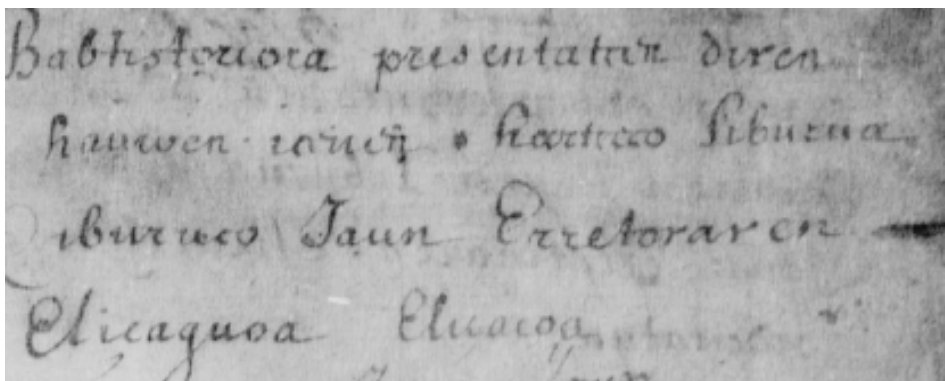 Babtistoriora presentatcen diren
haurren icenen hartceco liburua
Ciburuco Jaun Erretoraren
Elicaguoa Elicacoa